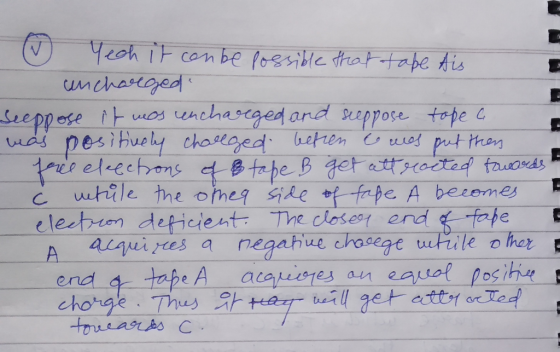 (v) Yeah it can be possible that tape A is
uncharged.
Suppose it was uncharged and suppose tape C
was positively charged. When C was put then
free electrons of tape B get attracted towards
C while the other side of tape A becomes
electron deficient. The closer end of tape
A acquires a negative charge while other
end of tape A acquires an equal positive
charge. Thus it will get attracted
towards C.